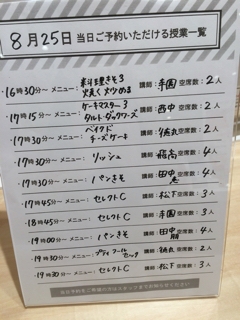 8月25日 当日ご予約いただける授業一覧
・16時30分〜 メニュー： 料理きそ3 炎長く炒める 講師： 空席数： 2人
・17時15分〜 メニュー： ケーキマスター3 タルトダックワーズ 講師：西中 空席数：2人
・17時30分〜 メニュー： ベイクドチーズケーキ 講師： 空席数：2人
・17時30分〜 メニュー： リッシュ 講師： 空席数：4人
・17時30分〜 メニュー： パンきそ 講師：田中 空席数：4人
・17時45分〜 メニュー： セレクトC 講師：松下 空席数：3人
・18時45分〜 メニュー： セレクトC 講師： 空席数：3人
・19時00分〜 メニュー： パンきそ 講師：田中 空席数：4人
・19時30分〜 メニュー： 講師： 空席数：2人
・19時30分〜 メニュー： セレクトC 講師：松下 空席数：3人
当日予約をご希望の方はスタッフまでお知らせください